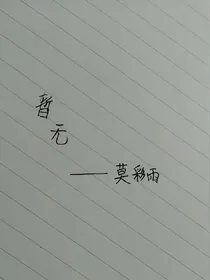 暂
无
——莫彩雨